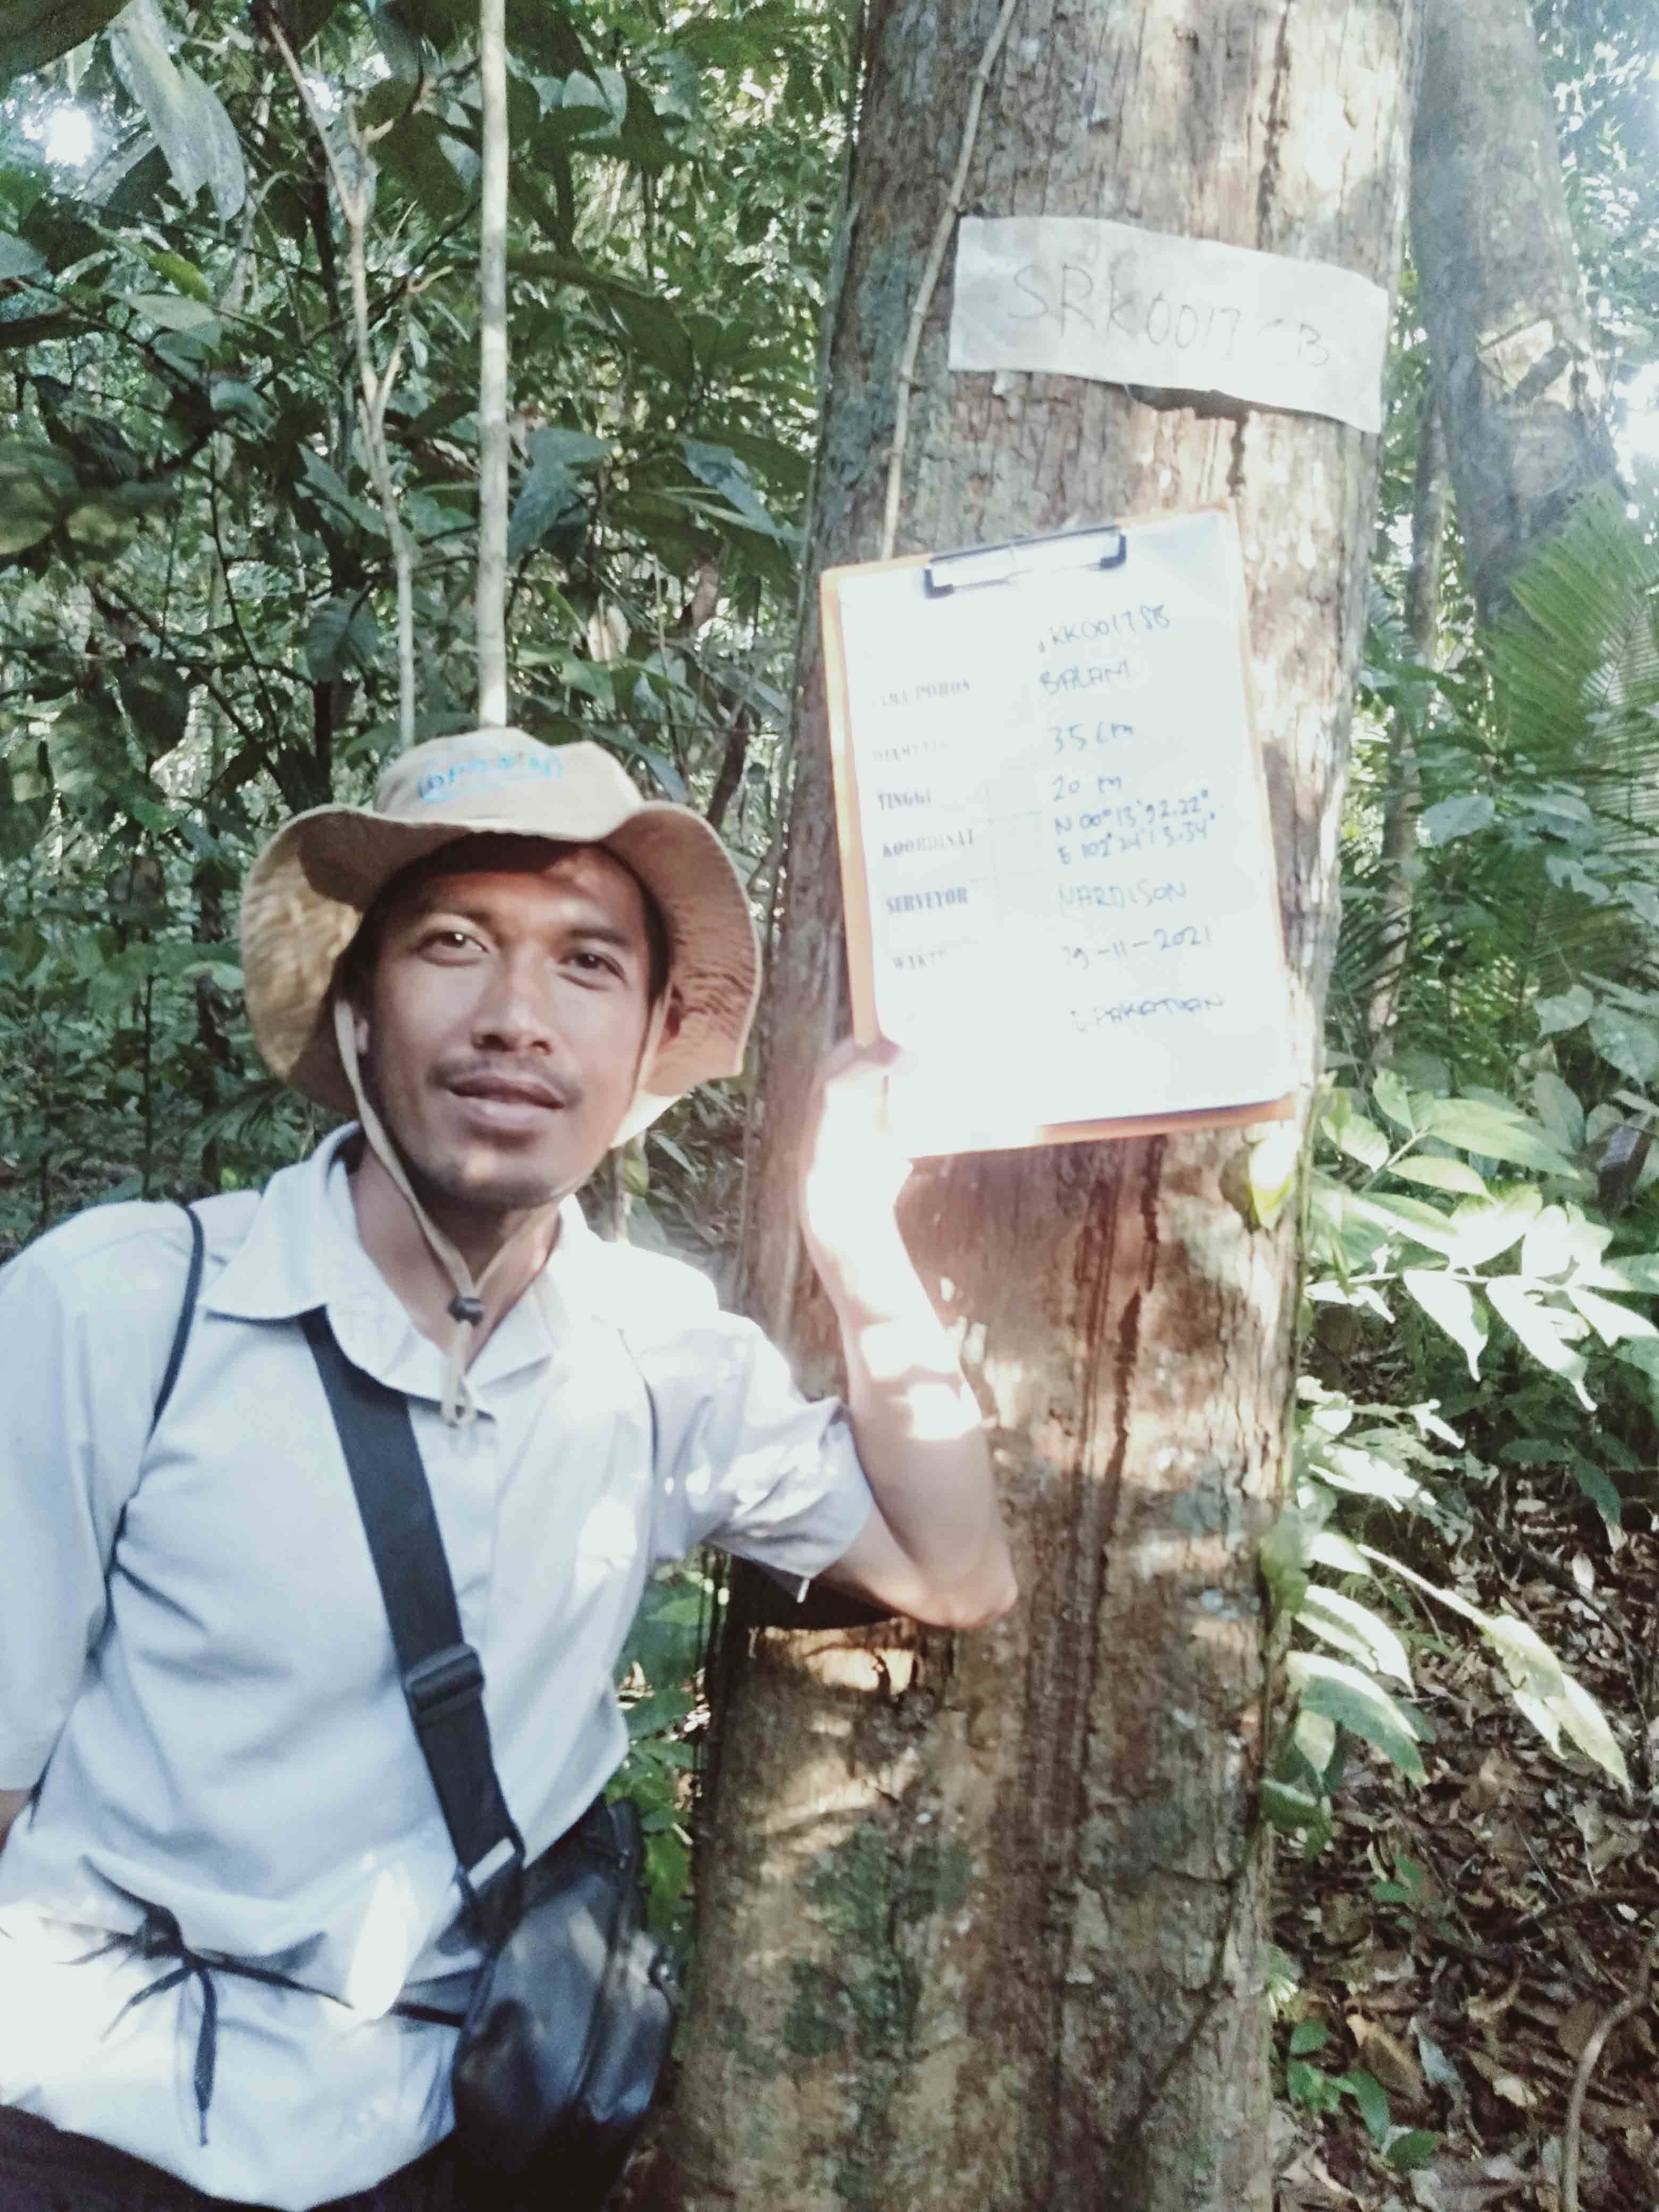 SRK0017
KK0017SB
POHON BALAM
35 cm
TINGGI 20 m
KOORDINAT N 00° 13' 92.22"
E 102° 24' 13.34"
SURVEYOR WARDISON
-11-2021